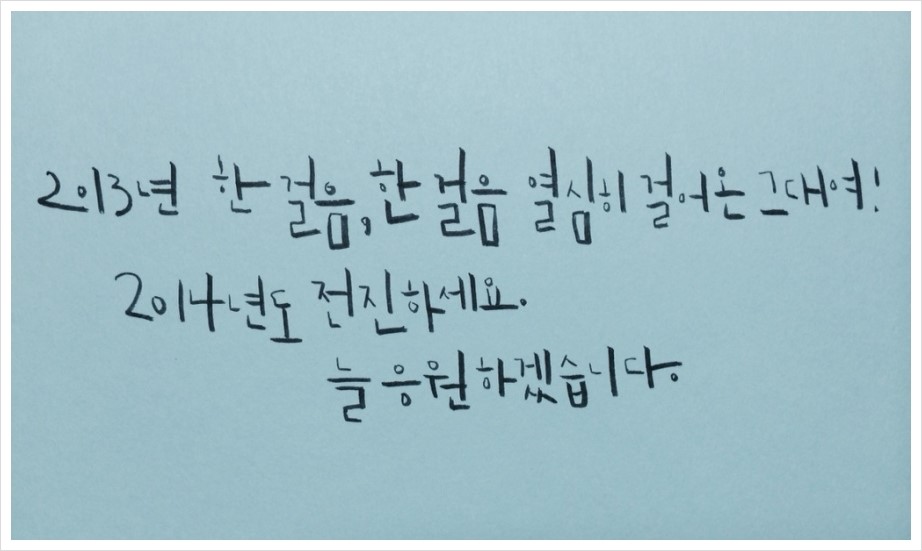 2013년 한 걸음, 한 걸음 열심히 걸어온 그대여!
2014년도 전진하세요.
늘 응원하겠습니다.